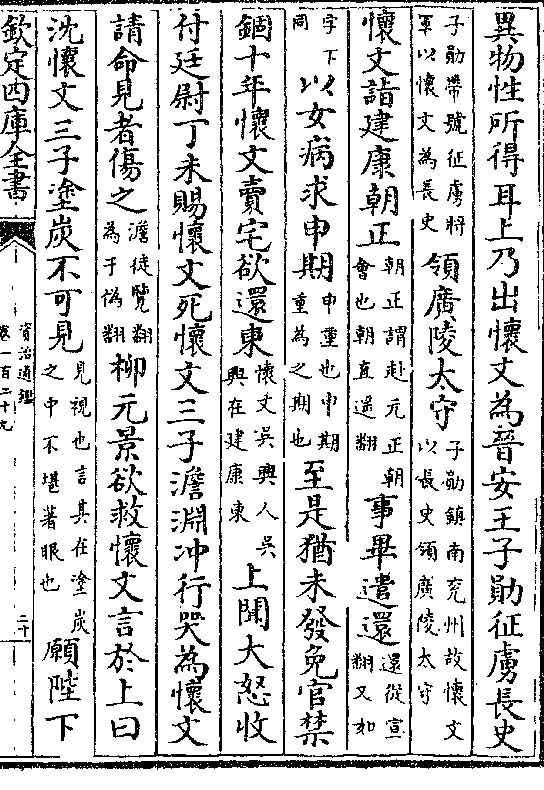 異物性所得耳上乃出懷文為晉安王子勛征虜長史
子勛帶號征虜將
軍以懷文為長史
領廣陵太守
子勛鎮南兖州故懷文
以長史領廣陵太守
懷文詣建康朝正
朝正謂赴元正朝
會也朝直遥翻
事畢遣還
還從宣
翻又如
字下
同
以女病求申期
申重也申期
重為之期也
至是猶未發免官禁
錮十年懷文賣宅欲還東
懷文吳興人吳
興在建康東
上聞大怒收
付廷尉丁未賜懷文死懷文三子澹淵冲行哭為懷文
請命見者傷之
澹徒覽翻
為于偽翻
柳元景欲救懷文言於上曰
沈懷文三子塗炭不可見
見視也言其在塗炭
之中不堪著眼也
願陛下
欽定四庫全書
資治通鑑
卷一百二十九
二十